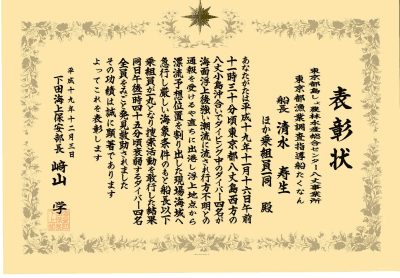 表彰状
東京都島しょ農林水産総合センター八丈事業所
東京都漁業調査指導船たくなん
船長 清水 寿生
ほか乗組員一同 殿
あなたがたは平成十九年十一月十六日午前
十一時三十分頃東京都八丈島西方の
八丈小島沖合いでダイビング中のダイバー四名が
海面浮上後強い潮流に流され行方不明との
通報を受けるや直ちに出港し浮上地点から
漂流予想位置を割り出した現場海域へ
急行し厳しい海象条件のもと船長以下
乗組員が一丸となり捜索活動を敢行した結果
同日午後一時四十五分頃衰弱するダイバー四名
全員をみごと発見救助されました
その功績は誠に顕著であります
よってこれを表彰します
平成十九年十二月三日
下田海上保安部長 﨑山 学